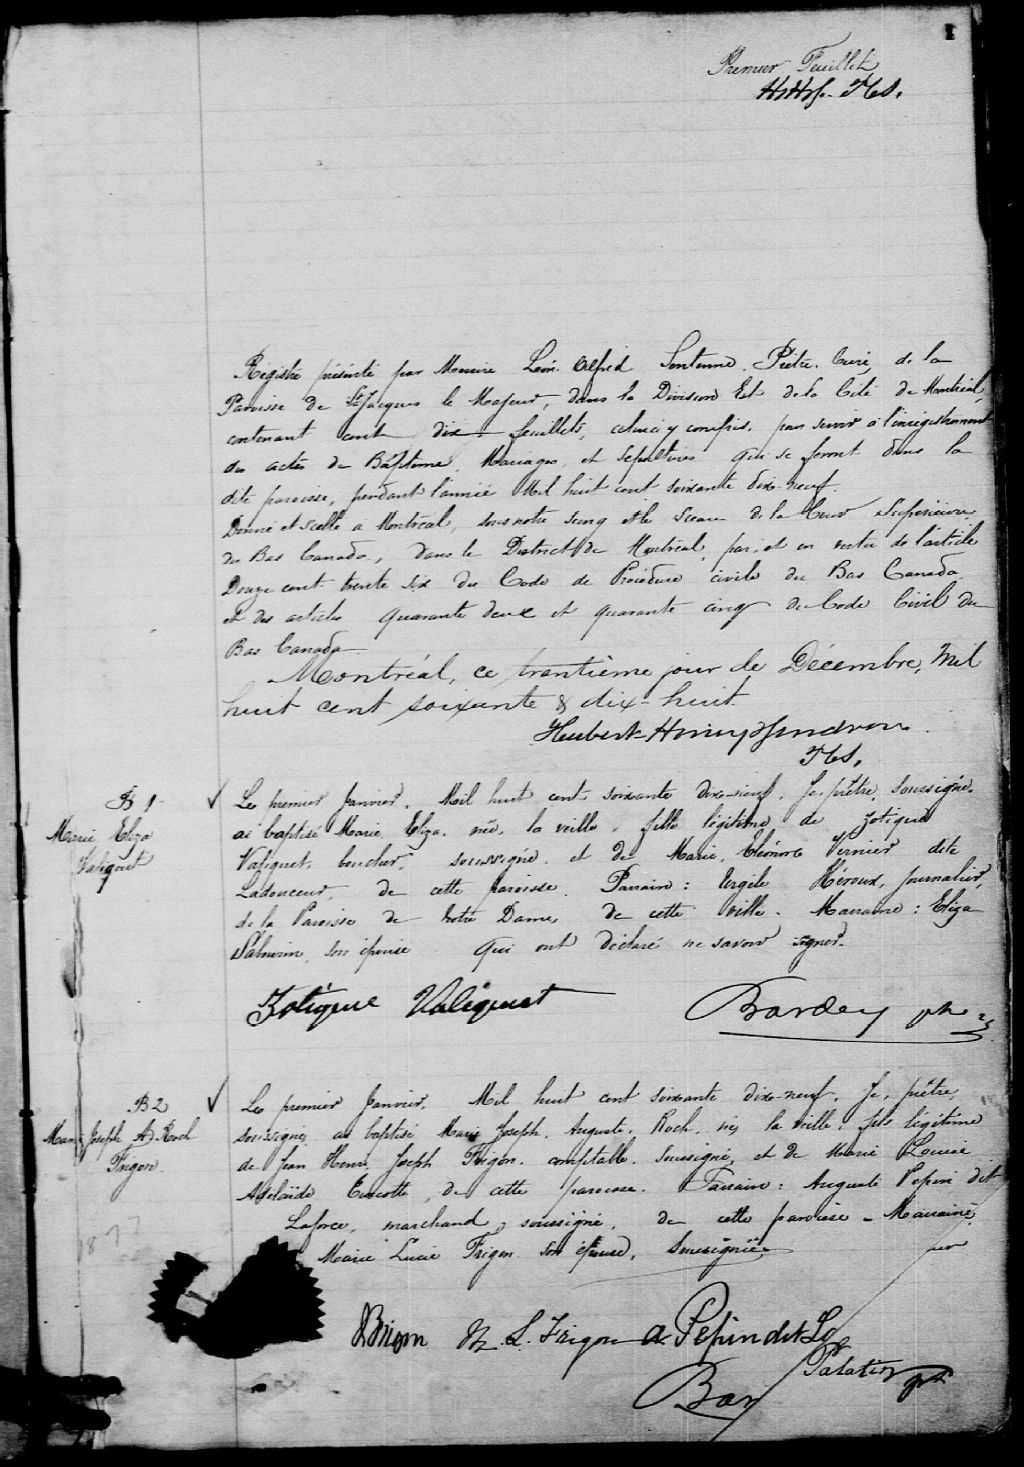 1
Premier Feuillet
Registre présenté par Messire Léon Alfred Sentenne, Prêtre, Curé, de la
Paroisse de St Jacques le Majeur, dans la Division Est de la Cité de Montréal,
contenant cent dix feuillets, celui ci y compris, pour servir à l'enrégistrement
des actes de Baptême, Mariages, et Sépultures qui se feront dans la
dite paroisse, pendant l'année Mil huit cent soixante dix-neuf.
Donné et scellé à Montréal, sous notre seing et le Sceau de la Cour Supérieure
du Bas Canada, dans le District de Montréal, par, et en vertu de l'article
Douze cent trente six du Code de Procédure civile du Bas Canada
et des articles quarante deux et quarante cinq du Code Civil du
Bas Canada
Montréal, ce trentième jour de Décembre, Mil
huit cent soixante & dix-huit.
B 1
Marie Eliza
Valiquet
Le premier Janvier, Mil huit cent soixante dix-neuf, Je, prêtre, soussigné,
ai baptisé Marie Eliza, née, la veille, fille légitime de Zotique
Valiquet, boucher, soussigné, et de Marie, Eléonore Vernier dite
Ladouceur, de cette paroisse. Parrain: Héroux, journalier,
de la Paroisse de Notre Dame, de cette ville. Marraine: Eliza
son épouse qui ont déclaré ne savoir signer.
Zotique Valiquet
B 2
Marie Joseph A. Roch
Frigon
Le premier Janvier, Mil huit cent soixante dix-neuf, Je, prêtre,
soussigné, ai baptisé Marie Joseph, Auguste, Roch, né, la veille, fils légitime
de Jean Henri Joseph Frigon, comptable, soussigné, et de Marie Louise
Adélaïde Turcotte, de cette paroisse. Parrain: Auguste Pepin dit
Laforce, marchand, soussigné, de cette paroisse - Marraine,
Marie Lucie Frigon son épouse, soussignée
M. L. Frigon A Pepin dit La